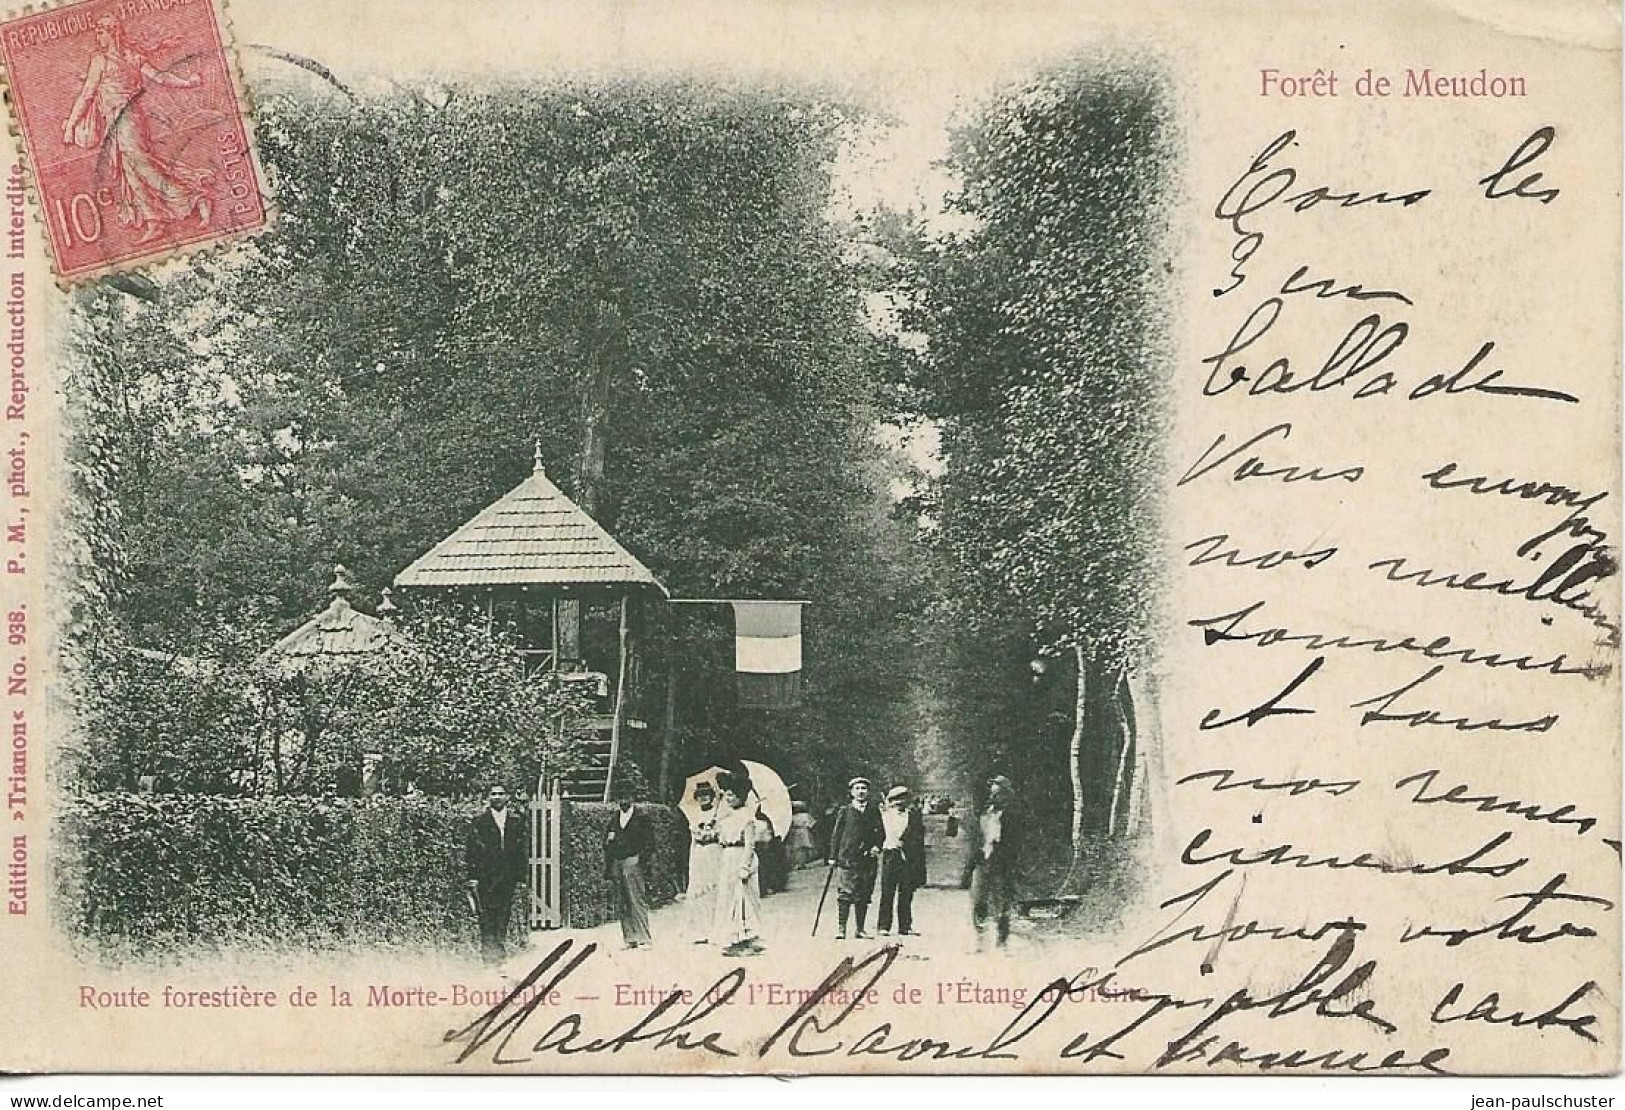 REPUBLIQUE FRANÇAISE
POSTES
10c
Edition »Trianon« No. 938. P. M., phot., Reproduction interdite
Forêt de Meudon
Tous les
3 en
ballade
Vous envoyons
nos meilleurs
souvenirs
et tous
nos remer-
ciments
pour votre
aimable carte
Marthe Raoul et
Route forestière de la Morte-Bouteille — Entrée de l'Ermitage de l'Étang d'Ursine
delcampe.net
jean-paulschuster